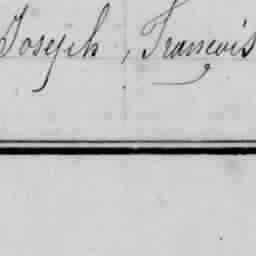 Joseph, François